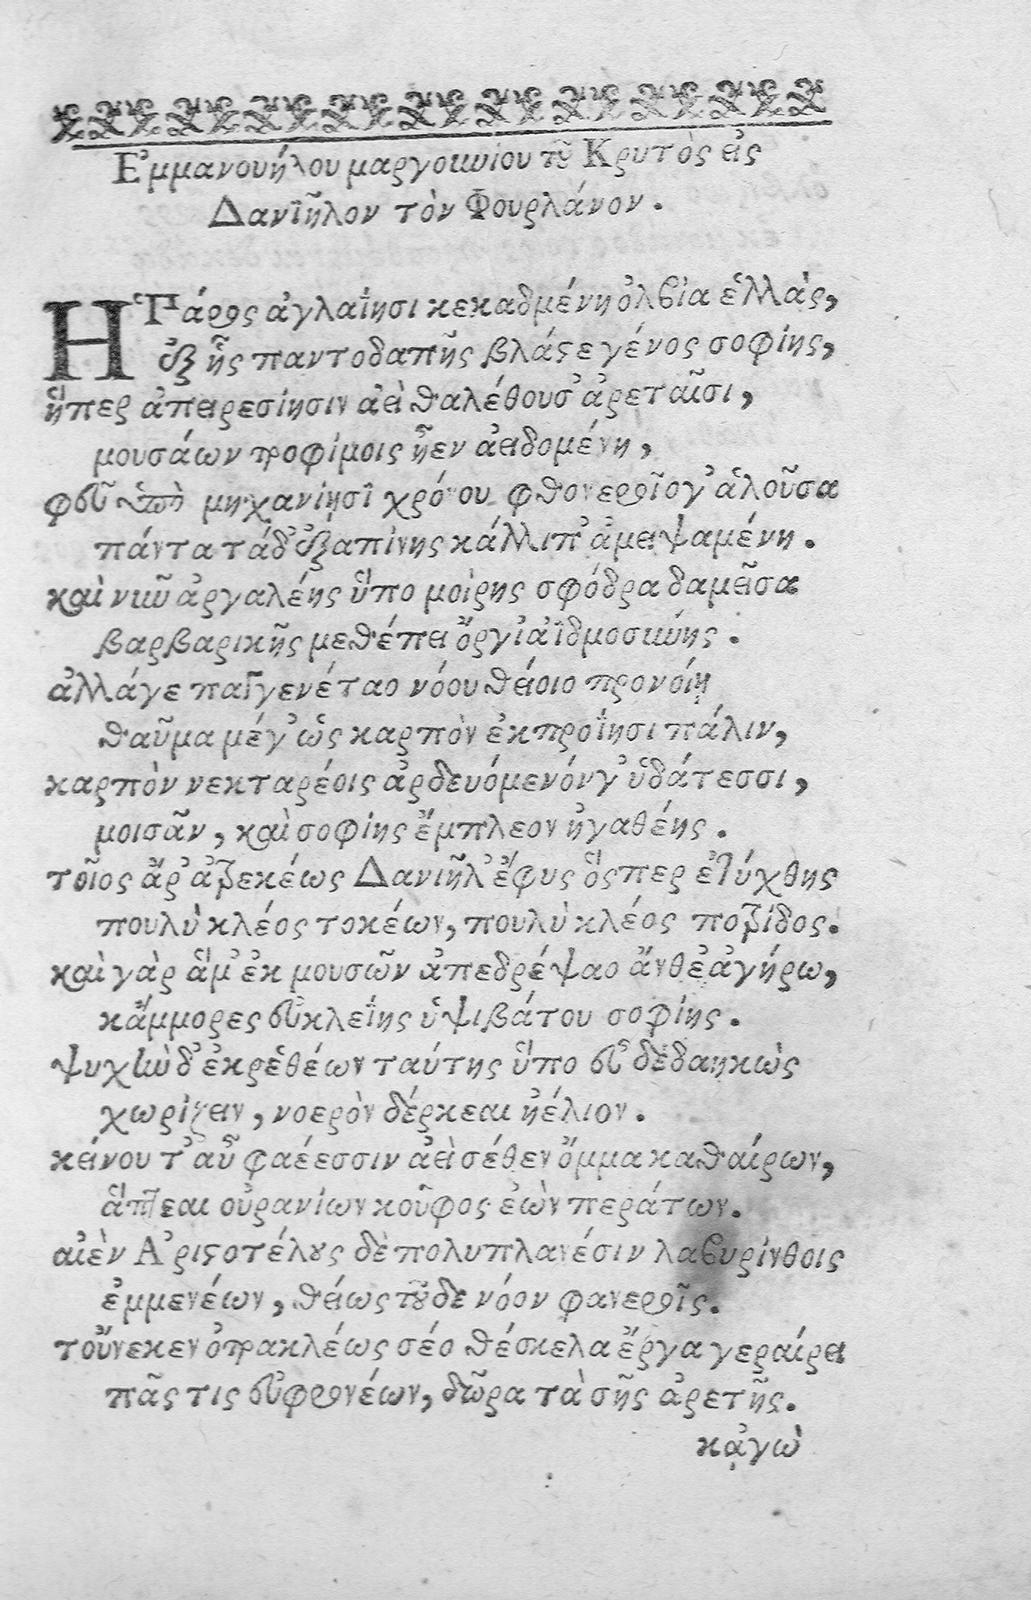 Ἐμμανουήλου μαργουνίου τοῦ Κρητὸς εἰς
Δανιῆλον τὸν Φουρλάνον.
Ἡ πάρος ἀγλαΐησι κεκαδμένη ὀλβία ἑλλὰς,
ἐξ ἧς παντοδαπῆς βλάστε γένος σοφίης,
ἥπερ ἀπειρεσίησιν ἀεὶ θαλέθουσ᾽ ἀρεταῖσι,
μουσάων τροφίμοις ἦεν ἀειδομένη,
φεῦ ὑπὸ μηχανίησι χρόνου φθονεροῖο γ᾽ ἁλοῦσα
πάντα τάδ᾽ ἐξαπίνης κάλλιπ᾽ ἀμειψαμένη.
καὶ νῦν ἀργαλέης ὕπο μοίρης σφόδρα δαμεῖσα
βαρβαρικῆς μεθέπει ὄργι᾽ ἀϊδμοσύνης.
ἀλλάγε παγγενέταο νόου θείοιο προνοίῃ
θαῦμα μέγ᾽ ὡς καρπὸν ἐκπροΐησι πάλιν,
καρπὸν νεκταρέοις ἀρδευόμενόν γ᾽ ὑδάτεσσι,
μοισᾶν, καὶ σοφίης ἔμπλεον ἠγαθέης.
τοῖος ἄρ᾽ ἀτρεκέως Δανιῆλ᾽ ἔφυς ὅσπερ ἐτύχθης
πουλὺ κλέος τοκέων, πουλὺ κλέος πατρίδος.
καὶ γὰρ ἅμ᾽ ἐκ μουσῶν ἀπεδρέψαο ἄνθε᾽ ἀγήρω,
κἄμμορες εὐκλεΐης ὑψιβάτου σοφίης.
ψυχὴν δ᾽ ἐκ ῥεθέων ταύτης ὕπο εὖ δεδαηκὼς
χωρίζειν, νοερὸν δέρκεαι ἠέλιον.
κείνου τ᾽ αὖ φαέεσσιν ἀεὶ σέθεν ὄμμα καθαίρων,
ἅπτεαι οὐρανίων κοῦφος ἐὼν περάτων.
αἰὲν Ἀριστοτέλους δὲ πολυπλανέσιν λαβυρίνθοις
ἐμμενέων, θείως τοῦδε νόον φανεροῖς.
τοὔνεκεν ὀτρακλέως σέο θέσκελα ἔργα γεραίρει
πᾶς τις εὐφρονέων, δῶρα τὰ σῆς ἀρετῆς.
κᾀγὼ